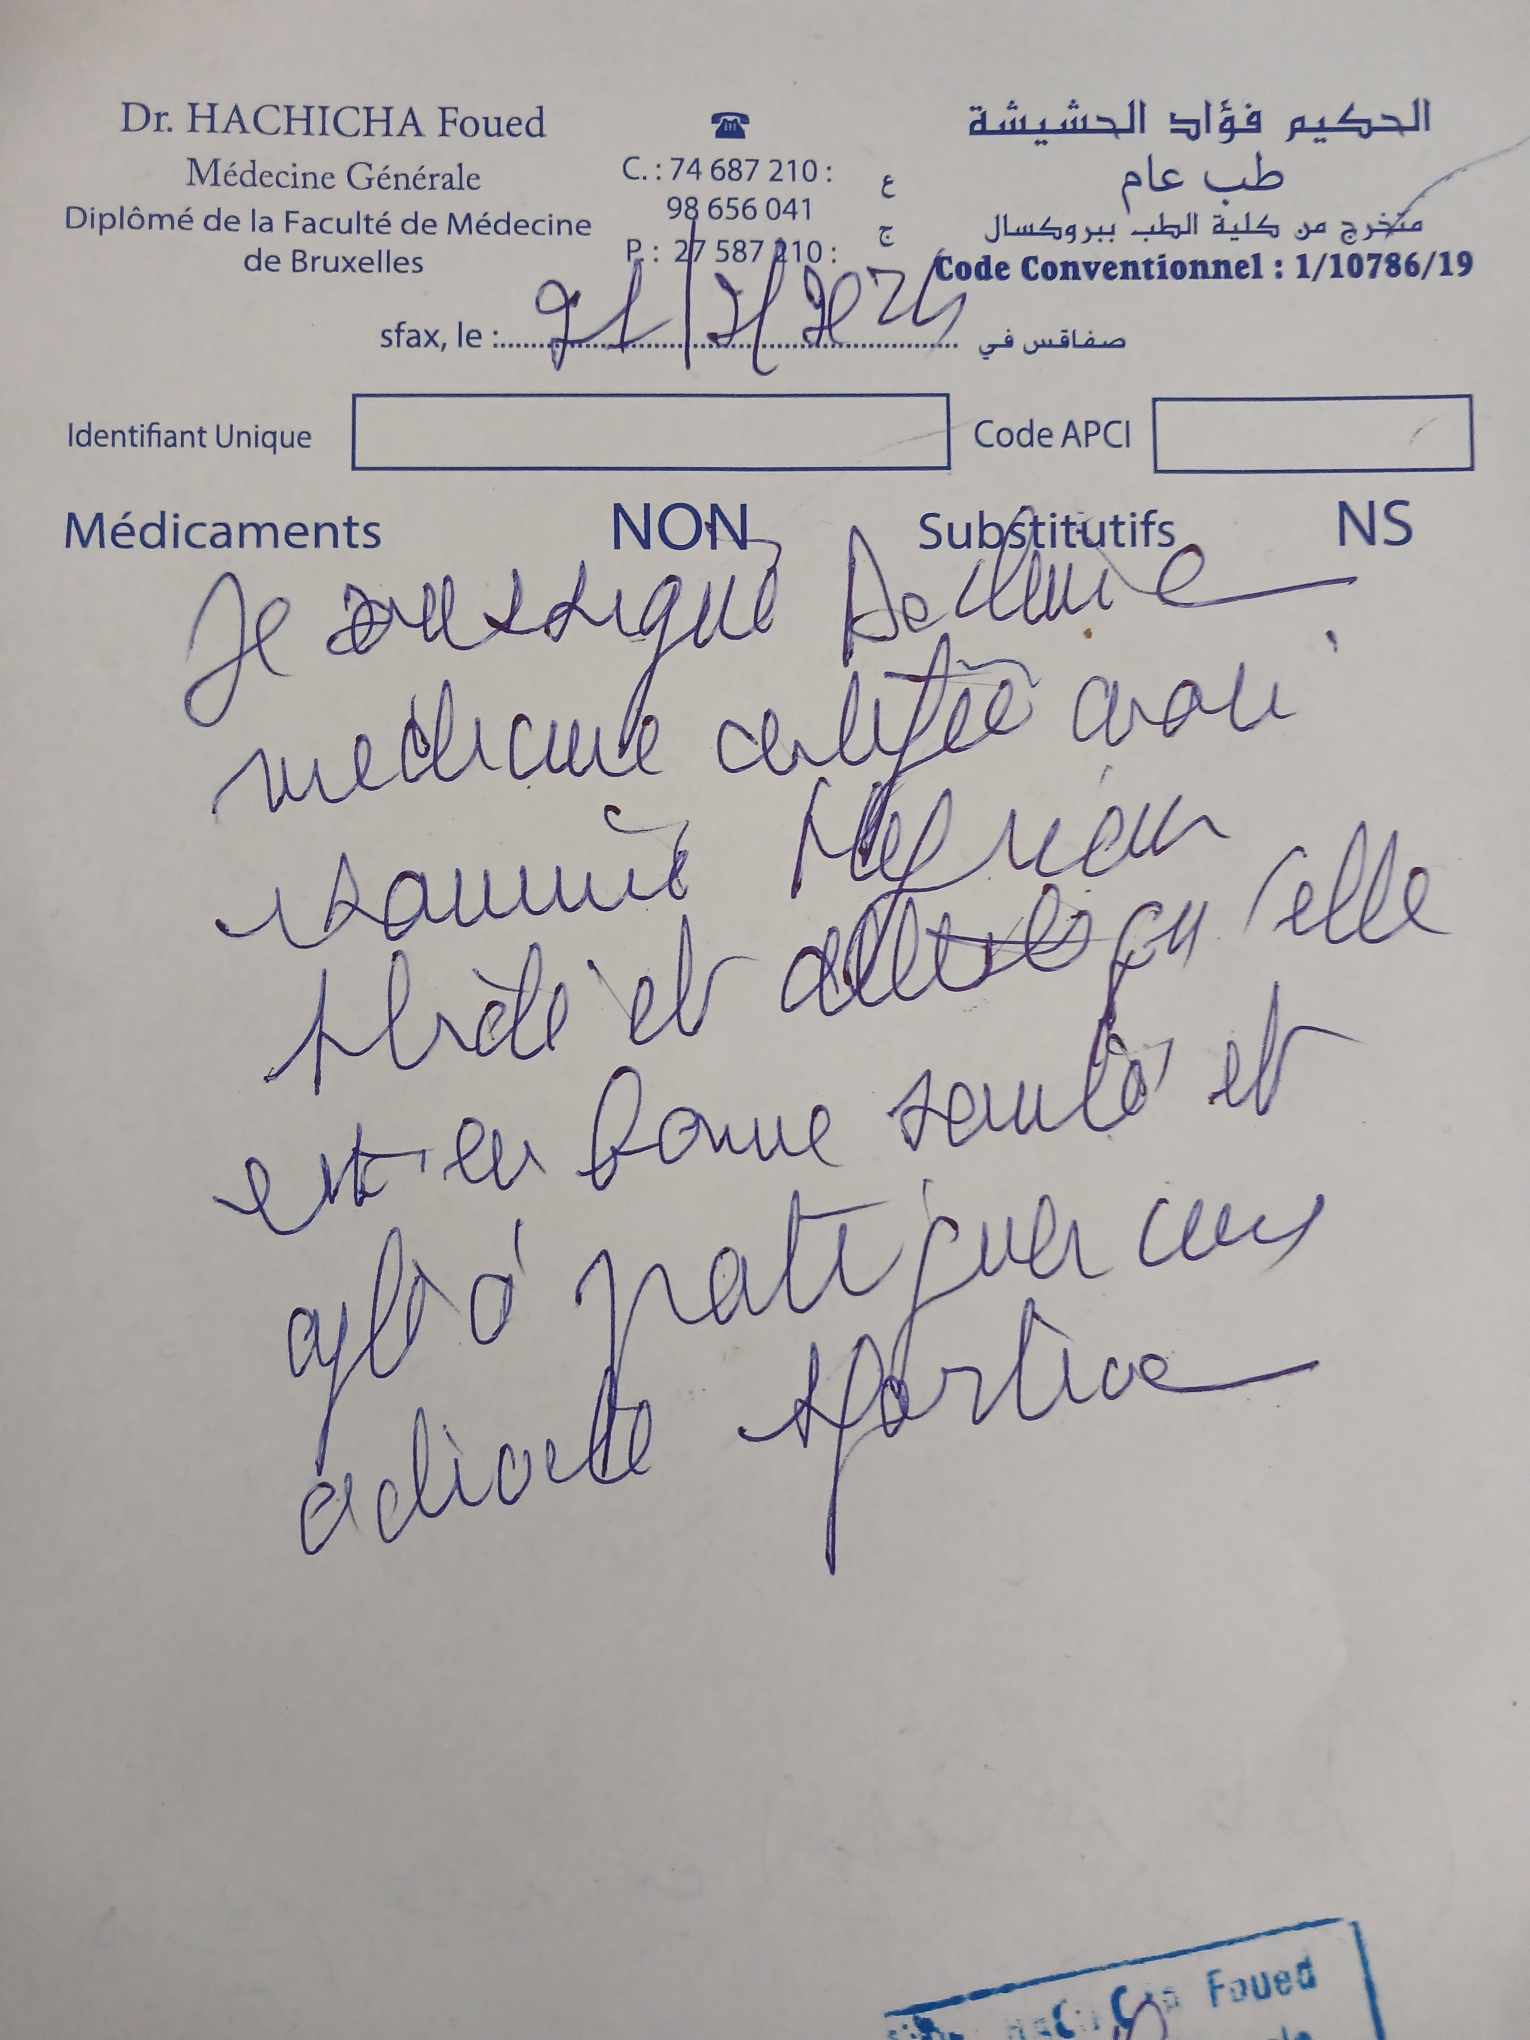 Dr. HACHICHA Foued
Médecine Générale
Diplômé de la Faculté de Médecine
de Bruxelles
C. : 74 687 210 : ع
98 656 041
P. : 27 587 210 : ج
الحكيم فؤاد الحشيشة
طب عام
متخرج من كلية الطب ببروكسال
Code Conventionnel : 1/10786/19
sfax, le : صفاقس في
Identifiant Unique Code APCI
Médicaments NON Substitutifs NS
Je soussigné Docteur
medecine certifie avoir
examiné
et qu'elle
est en bonne santé et
apte à pratiquer une
activité sportive
Foued